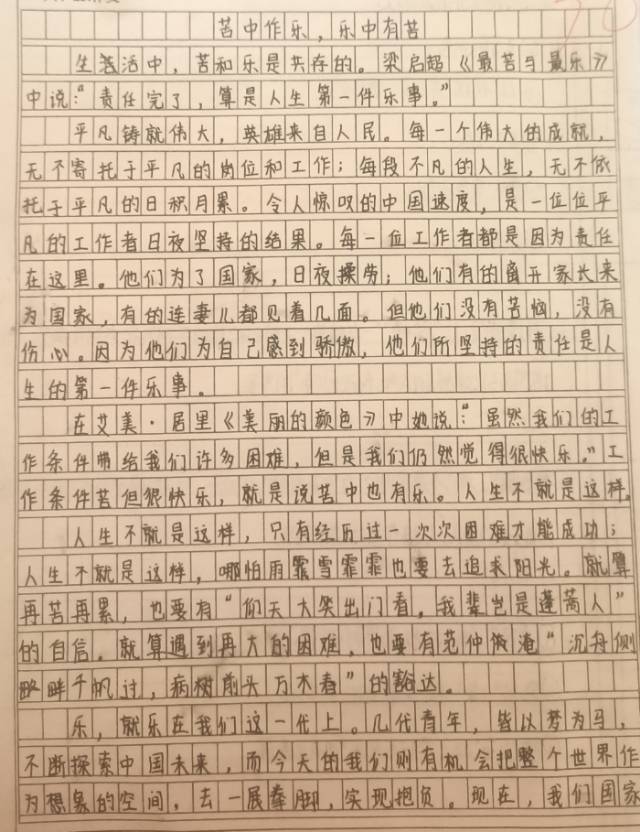 苦中作乐，乐中有苦
生活中，苦和乐是共存的。梁启超《最苦与最乐》
中说：“责任完了，算是人生第一件乐事。”
平凡铸就伟大，英雄来自人民。每一个伟大的成就，
无不寄托于平凡的岗位和工作；每段不凡的人生，无不依
托于平凡的日积月累。令人惊叹的中国速度，是一位位平
凡的工作者日夜坚持的结果。每一位工作者都是因为责任
在这里。他们为了国家，日夜操劳；他们有的离开家长来
为国家，有的连妻儿都见着几面。但他们没有苦恼，没有
伤心。因为他们为自己感到骄傲，他们所坚持的责任是人
生的第一件乐事。
在艾芙·居里《美丽的颜色》中她说：“虽然我们的工
作条件带给我们许多困难，但是我们仍然觉得很快乐。”工
作条件苦但很快乐，就是说苦中也有乐。人生不就是这样。
人生不就是这样，只有经历过一次次困难才能成功；
人生不就是这样，哪怕雨雪霏霏也要去追求阳光。就算
再苦再累，也要有“仰天大笑出门看，我辈岂是蓬蒿人”
的自信。就算遇到再大的困难，也要有范仲淹“沉舟侧
畔千帆过，病树前头万木春”的豁达。
乐，就乐在我们这一代上。几代青年，皆以梦为马，
不断探索中国未来，而今天的我们则有机会把整个世界作
为想象的空间，去一展拳脚，实现抱负。现在，我们国家